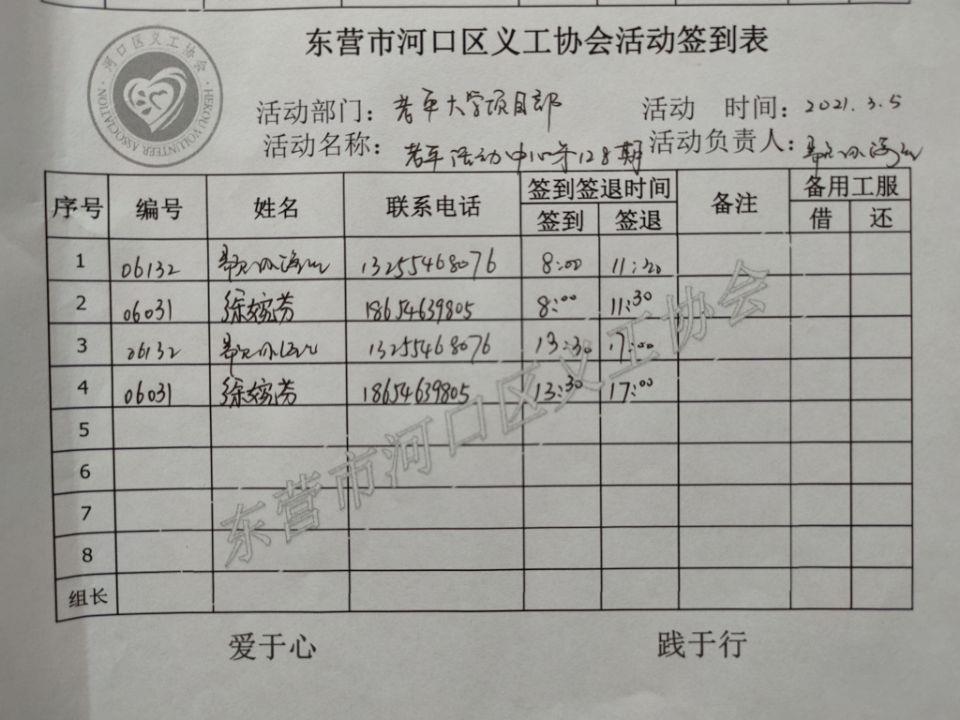 东营市河口区义工协会活动签到表
河口区义工协会
HEKOU VOLUNTEER ASSOCIATION
活动部门：老年大学项目部 活动 时间：2021.3.5
活动名称：老年活动中心第128期 活动负责人：
序号 编号 姓名 联系电话 签到签退时间 备注 备用工服
签到 签退 借 还
1 06132 13255468076 8:00 11:30
2 06031 徐婉芳 18654639805 8:00 11:30
3 06132 13255468076 13:30 17:00
4 06031 徐婉芳 18654639805 13:30 17:00
5
6
7
8
组长
东营市河口区义工协会
爱于心 践于行